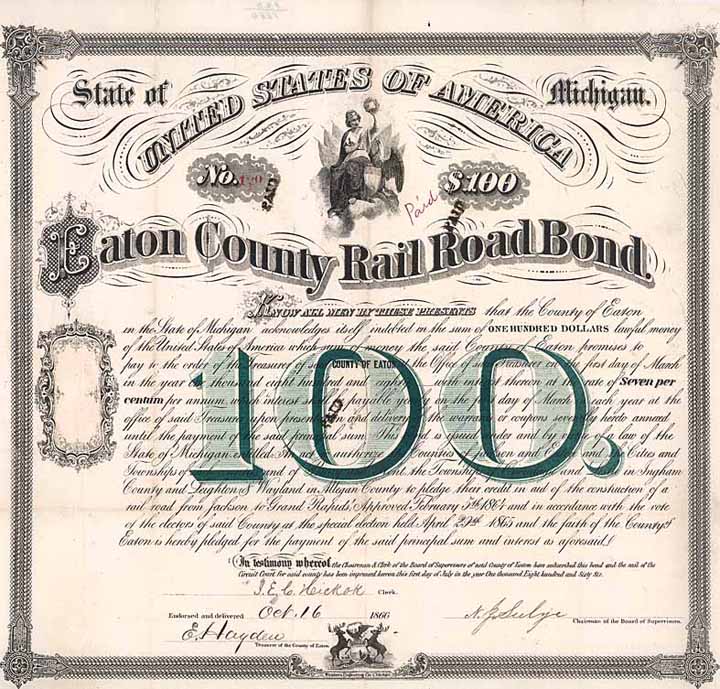 State of
Michigan.
UNITED STATES OF AMERICA
No. 120
PAID
Paid
$100
PAID
Eaton County Rail Road Bond.
KNOW ALL MEN BY THESE PRESENTS that the County of Eaton
in the State of Michigan acknowledges itself indebted in the sum of ONE HUNDRED DOLLARS lawful money
of the United States of America which sum of money the said County of Eaton promises to
pay to the order of the Treasurer of said COUNTY OF EATON at the Office of said Treasurer on the first day of March
in the year one thousand eight hundred and eighty with interest thereon at the rate of Seven per
centum per annum, which interest shall be payable yearly on the first day of March in each year at the
office of said Treasurer upon presentation and delivery of the warrants or coupons severally hereto annexed
until the payment of the said principal sum. This bond is issued under and by virtue of a law of the
State of Michigan entitled An act to authorize Counties of Jackson and Eaton and Cities and
Townships of and of the Townships and in Ingham
County and Leighton & Wayland in Allegan County to pledge their credit in aid of the construction of a
rail road from Jackson to Grand Rapids, Approved February 5th 1864 and in accordance with the vote
of the electors of said County at the special election held April 1865 and the faith of the County of
Eaton is hereby pledged for the payment of the said principal sum and interest as aforesaid
100.
PAID
In testimony whereof the Chairman & Clerk of the Board of Supervisors of said County of Eaton have subscribed this bond and the seal of the
Circuit Court for said county has been impressed hereon this first day of July in the year One thousand Eight hundred and Sixty Six.
J.E.C. Hickok Clerk.
Endorsed and delivered Oct. 16 1866
E. Hayden
Treasurer of the County of Eaton
Chairman of the Board of Supervisors.
Western Engraving Co. Chicago